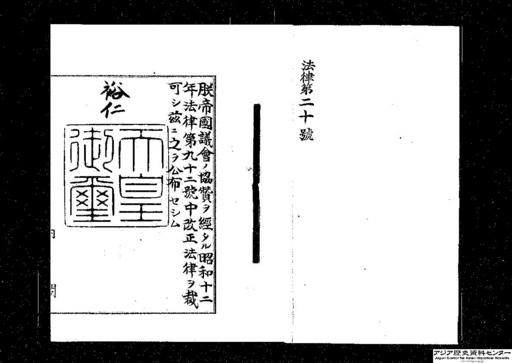 法律第二十號
朕帝國議會ノ協贊ヲ經タル昭和十二
年法律第九十二號中改正法律ヲ裁
可シ玆ニ之ヲ公布セシム
裕仁
天皇
御璽
内閣
アジア歴史資料センター
Japan Center for Asian Historical Records